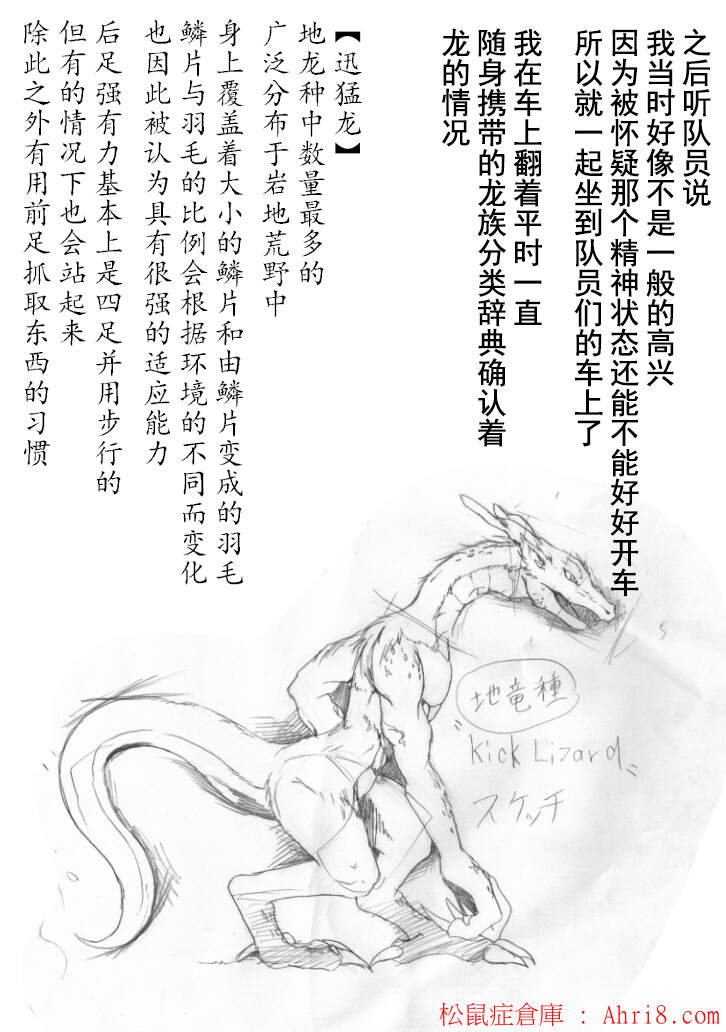 之后听队员说
我当时好像不是一般的高兴
因为被怀疑那个精神状态还能不能好好开车
所以就一起坐到队员们的车上了
我在车上翻着平时一直
随身携带的龙族分类辞典确认着
龙的情况
【迅猛龙】
地龙种中数量最多的
广泛分布于岩地荒野中
身上覆盖着大小的鳞片和由鳞片变成的羽毛
鳞片与羽毛的比例会根据环境的不同而变化
也因此被认为具有很强的适应能力
后足强有力基本上是四足并用步行的
但有的情况下也会站起来
除此之外有用前足抓取东西的习惯
地竜種
"Kick Lizard"
スケッチ
松鼠症倉庫 : Ahri8.com